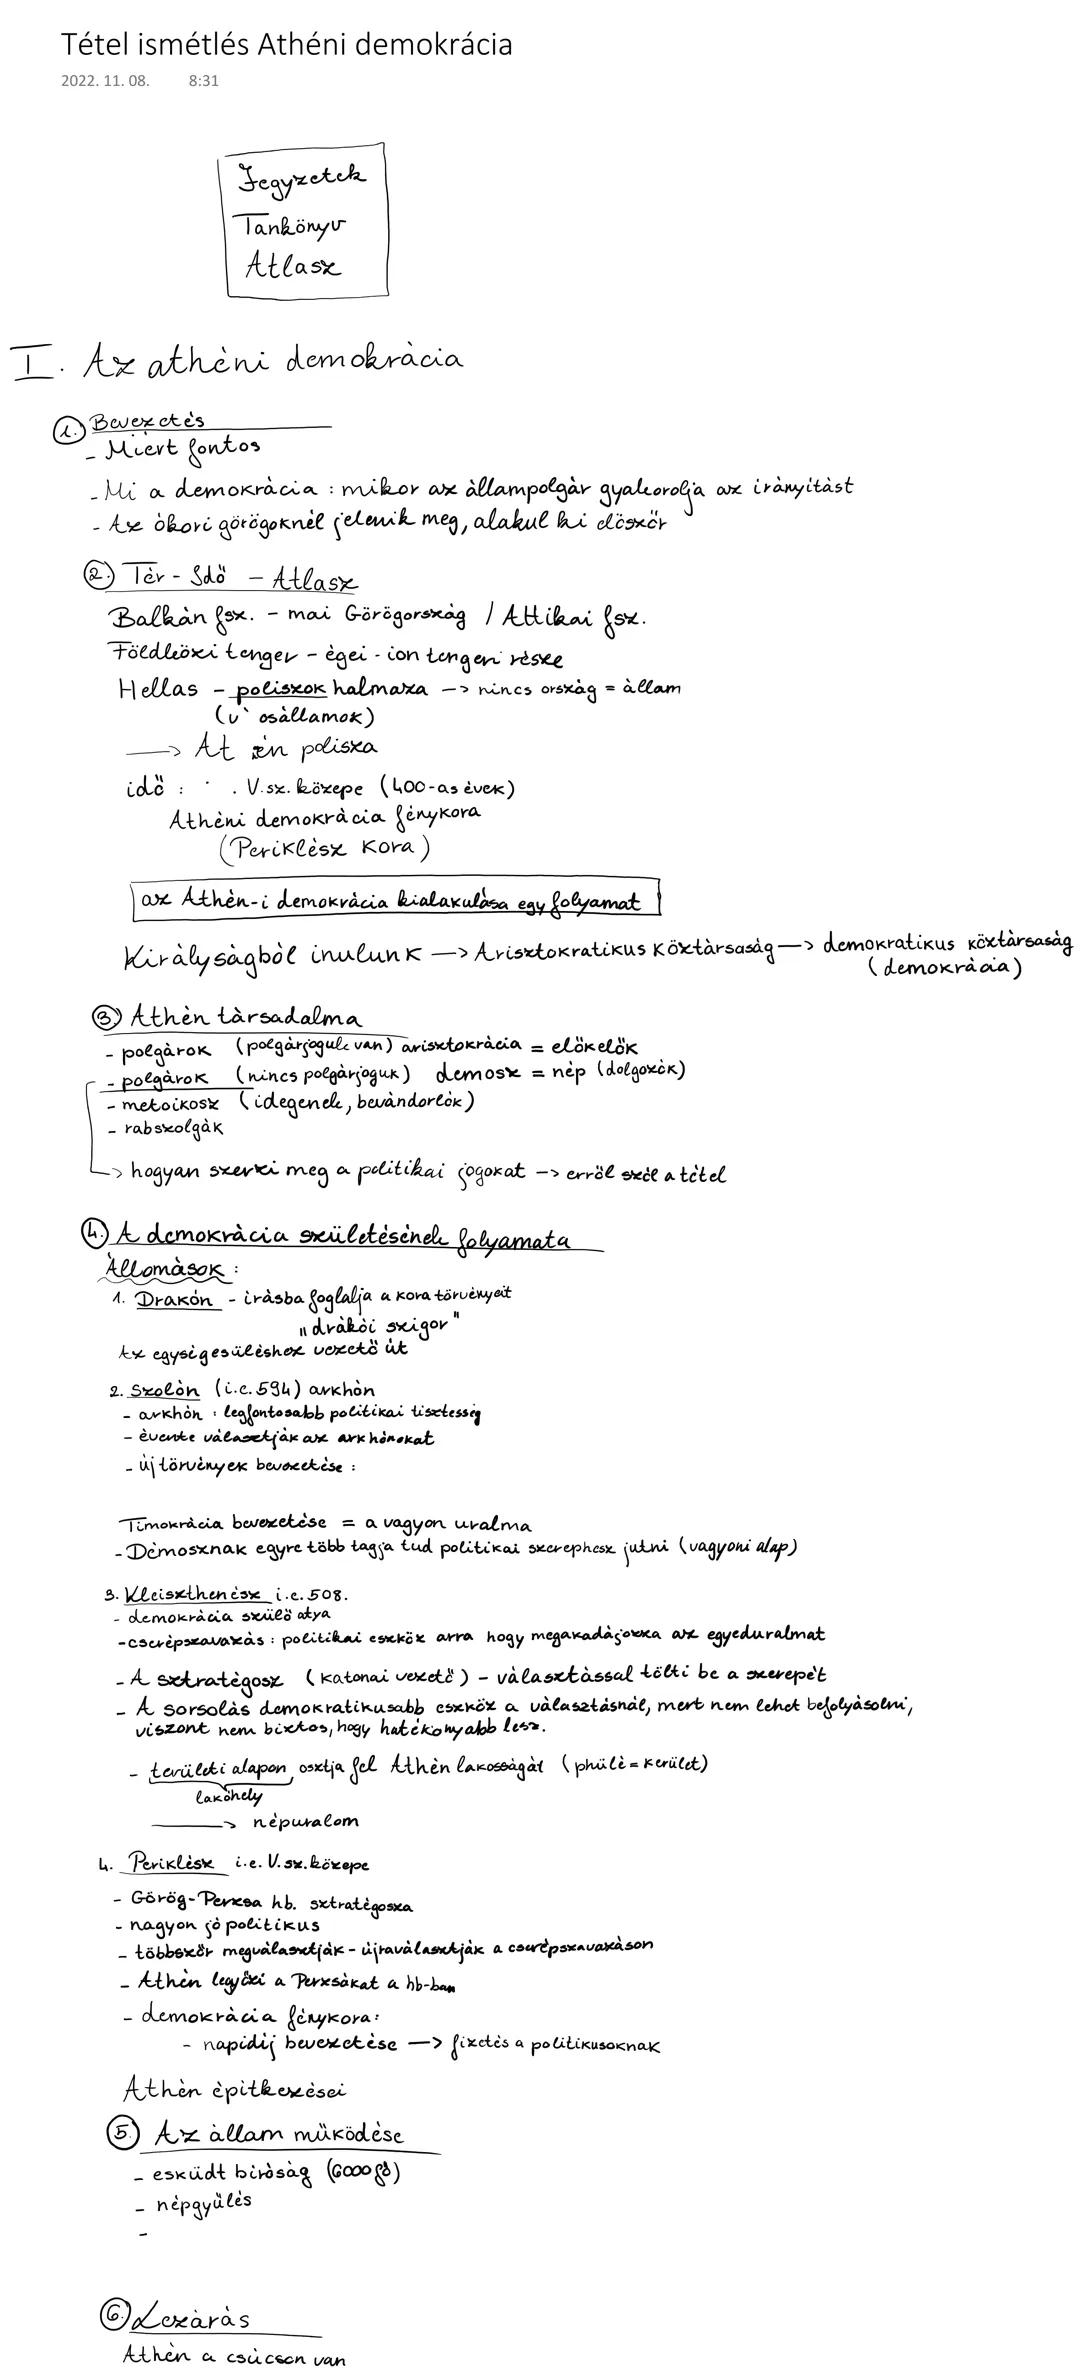 Tétel ismétlés Athéni demokrácia
2022. 11. 08. 8:31
Jegyzetek
Tankönyv
Atlasz
I. Az athéni demokrácia
1. Bevezetés
- Miért fontos
- Mi a demokrácia : mikor az állampolgár gyakorolja az irányítást
- Az ókori görögöknél jelenik meg, alakul ki először
2. Tér - Idő - Atlasz
Balkán fsz. - mai Görögország / Attikai fsz.
Földközi tenger - égei - ion tengeri része
Hellas - poliszok halmaza -> nincs ország = állam
(v osállamok)
-> At én polisza
idő : . V.sz. közepe (400-as évek)
Athéni demokrácia fénykora
(Periklész kora)
az Athén-i demokrácia kialakulása egy folyamat
Királyságból inulunk -> Arisztokratikus köztársaság -> demokratikus köztársaság
(demokrácia)
3. Athén társadalma
- polgárok (polgárjoguk van) arisztokrácia = előkelők
- polgárok (nincs polgárjoguk) demosz = nép (dolgozók)
- metoikosz (idegenek, bevándorlók)
- rabszolgák
-> hogyan szerzi meg a politikai jogokat -> erről szól a tétel
4. A demokrácia születésének folyamata
Állomások :
1. Drakón - írásba foglalja a kora törvényeit
"drákói szigor"
Az egységesüléshez vezető út
2. Szolón (i.e. 594) arkhón
- arkhón : legfontosabb politikai tisztesség
- évente választják az arkhónokat
- új törvények bevezetése :
Timokrácia bevezetése = a vagyon uralma
- Démosznak egyre több tagja tud politikai szerephesz jutni (vagyoni alap)
3. Kleiszthenész i.e. 508.
- demokrácia szülő atya
- cserépszavazás : politikai eszköz arra hogy megakadájozza az egyeduralmat
- A sztratégosz (katonai vezető) - választással tölti be a szerepét
- A sorsolás demokratikusabb eszköz a választásnál, mert nem lehet befolyásolni,
viszont nem biztos, hogy hatékonyabb lesz.
- területi alapon osztja fel Athén lakosságát (phülé = kerület)
lakóhely
-> népuralom
4. Periklész i.e. V.sz. közepe
- Görög-Perzsa hb. sztratégosza
- nagyon jó politikus
- többször megválasztják - újraválasztják a cserépszavazáson
- Athén legyőzi a Perzsákat a hb-ban
- demokrácia fénykora:
- napidíj bevezetése -> fizetés a politikusoknak
Athén építkezései
5. Az állam működése
- esküdt bíróság (6000 fő)
- népgyűlés
-
6. Lezárás
Athén a csúcson van